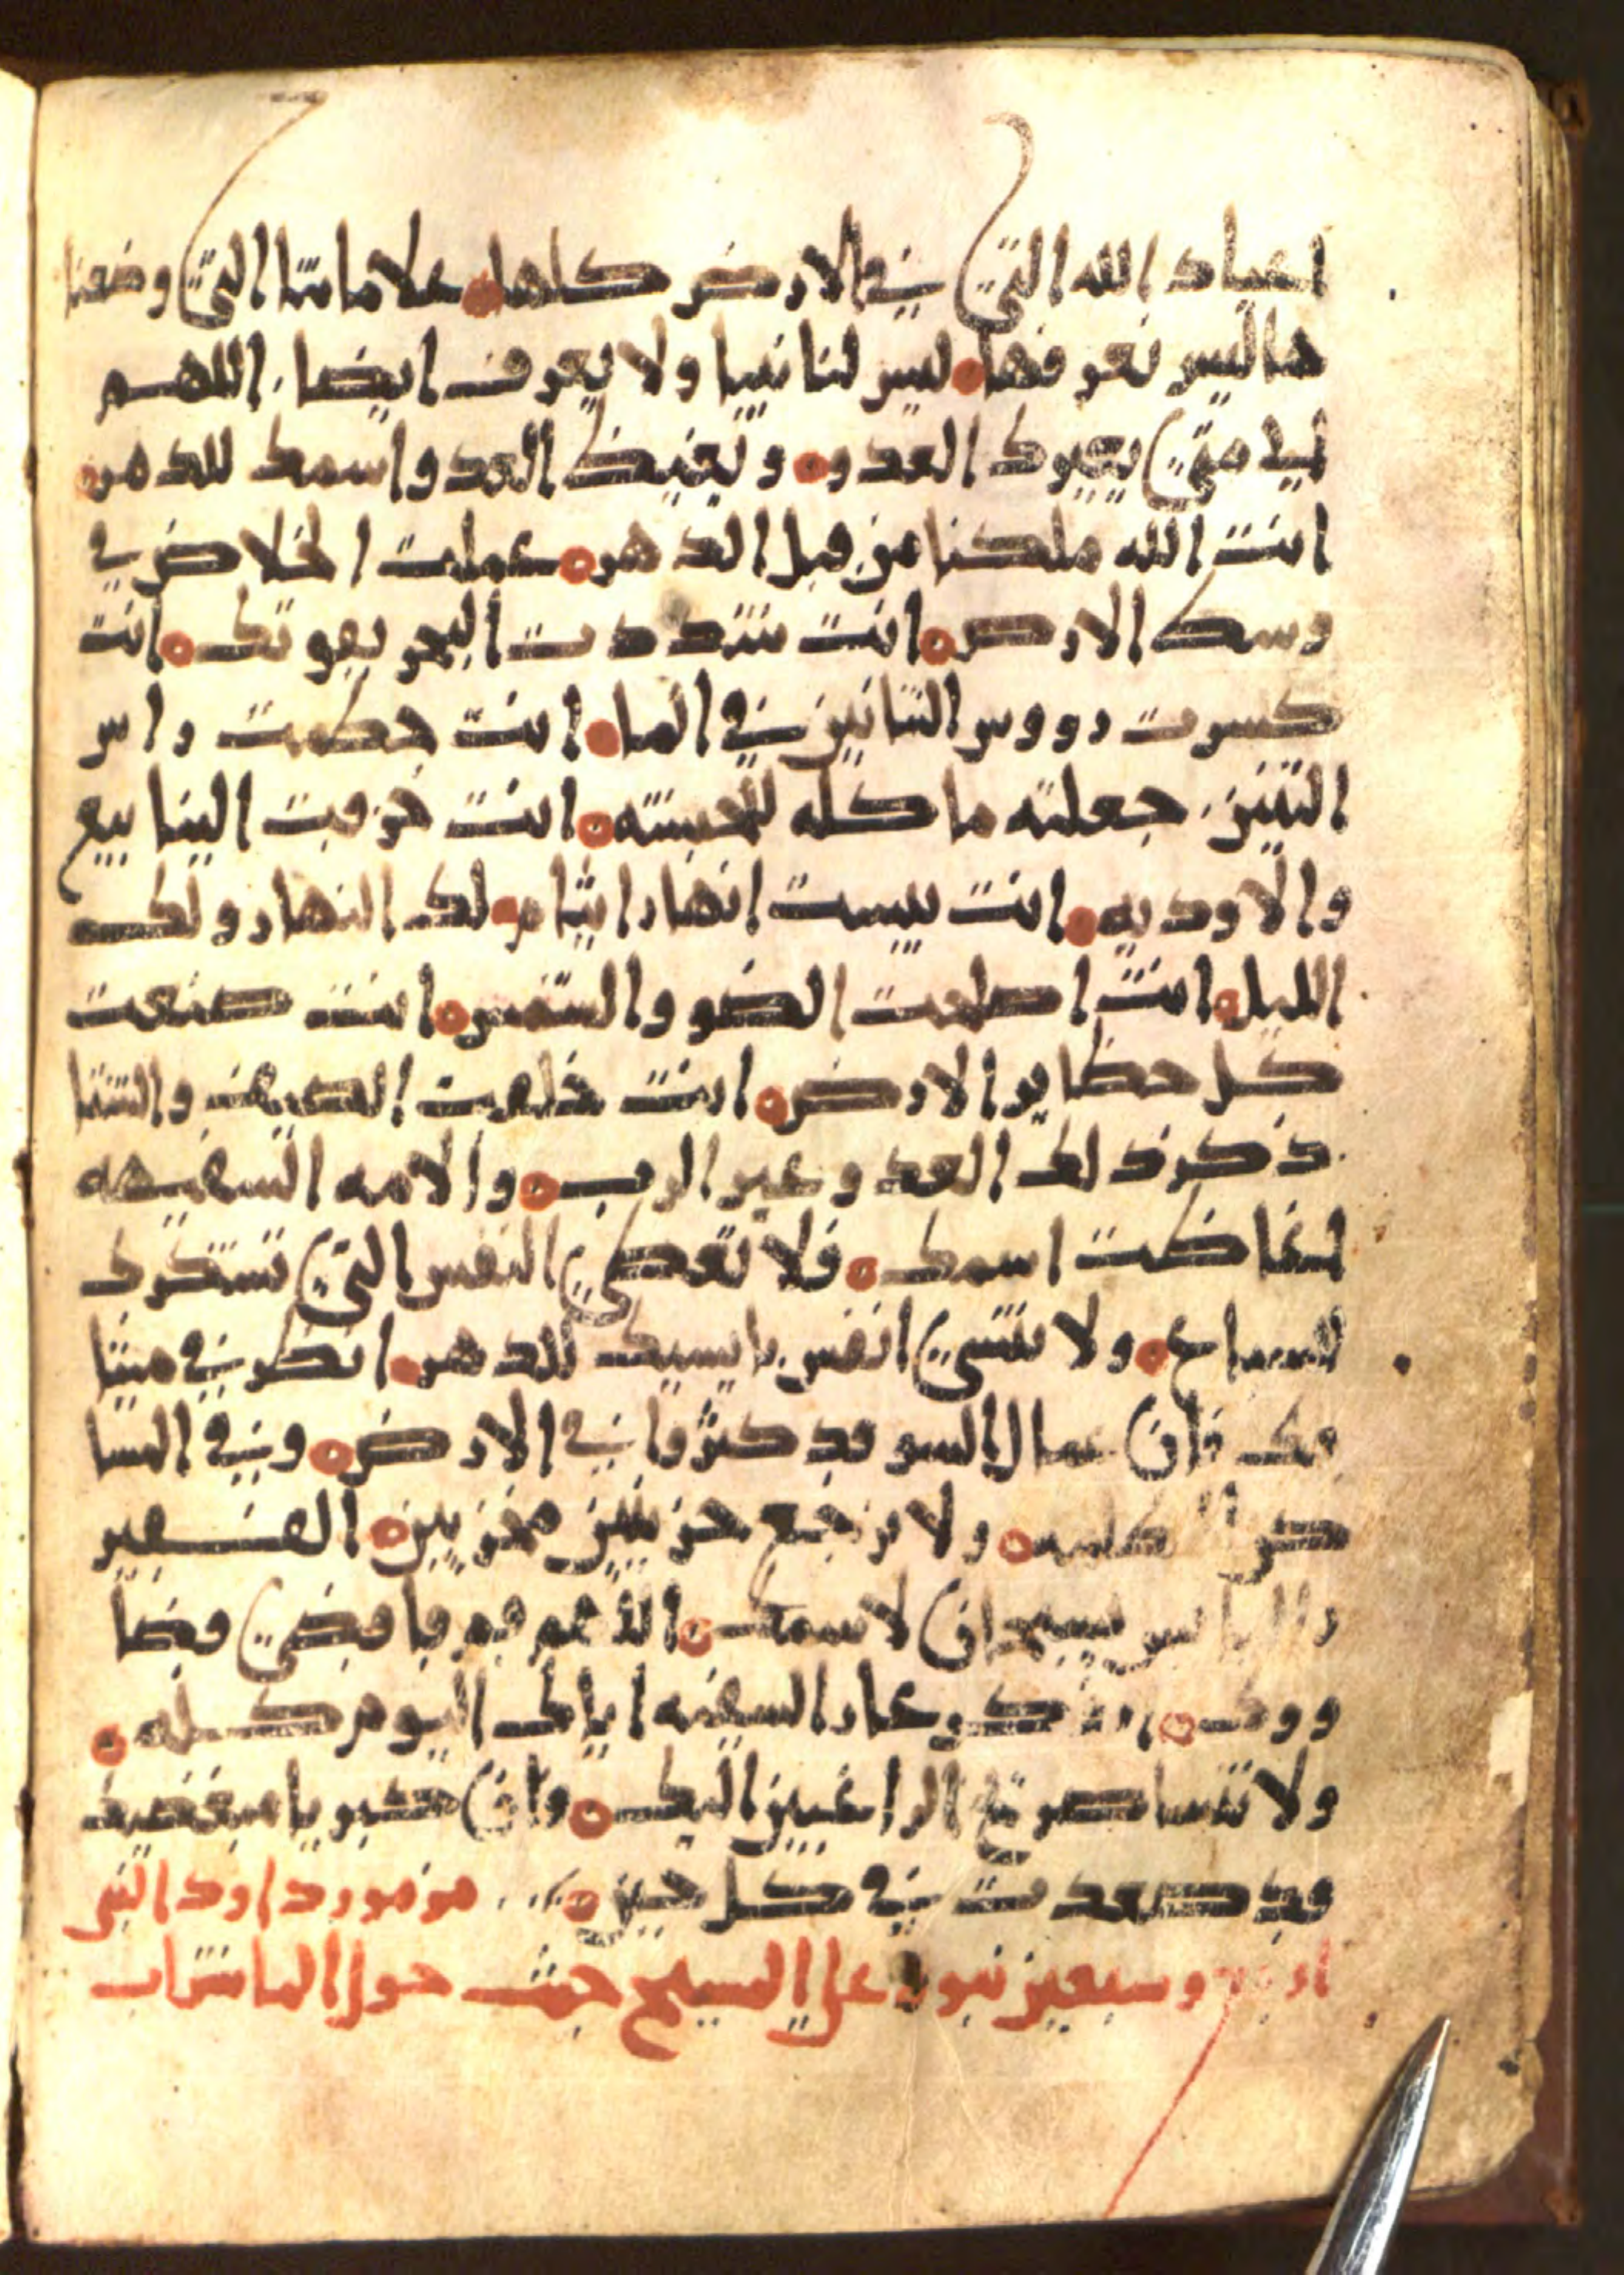 اعياد الله التي في الارض كلها علاماتنا التي وضعنا
ها ليس نعرفها ليس لنا نبيا ولا يعرف ايضا اللهم
الي متي يعيرك العدو ويغيض العدو اسمك للدهر
انت الله ملكنا من قبل الدهر عملت الخلاص في
وسط الارض انت شددت البحر بقوتك انت
كسرت رووس التنانين في الما انت حطمت راس
التنين جعلته ماكله للحبشه انت خرقت الينابيع
والاوديه انت يبست انهار ايثام لك النهار ولك
الليل انت اصلحت الضو والشمس انت صنعت
كل حظاير الارض انت خلقت الصيف والشتا
ذكر ذلك العدو عير الرب والامه السفيهه
اغاضت اسمك فلا تعطي النفس التي تشكرك
للسباع ولا تنسي انفس بايسيك للدهر انظر في ميثا
قك فان عمال السو قد كثروا في الارض وفي المسا
كن كلهم ولا نرجع حزينين مخزيين الفقير
والبايس يسبحان لاسمك اللهم قم فاقضي قضا
ووك اذكر عار السفيه اياك اليوم كله
ولا تنسا صوت الراغبين اليك وان كبريا مبغضيك
قد صعدت في كل حين مزمور داود النبي
اربعه وسبعين نبوه علي المسيح حيث حول الما شراب